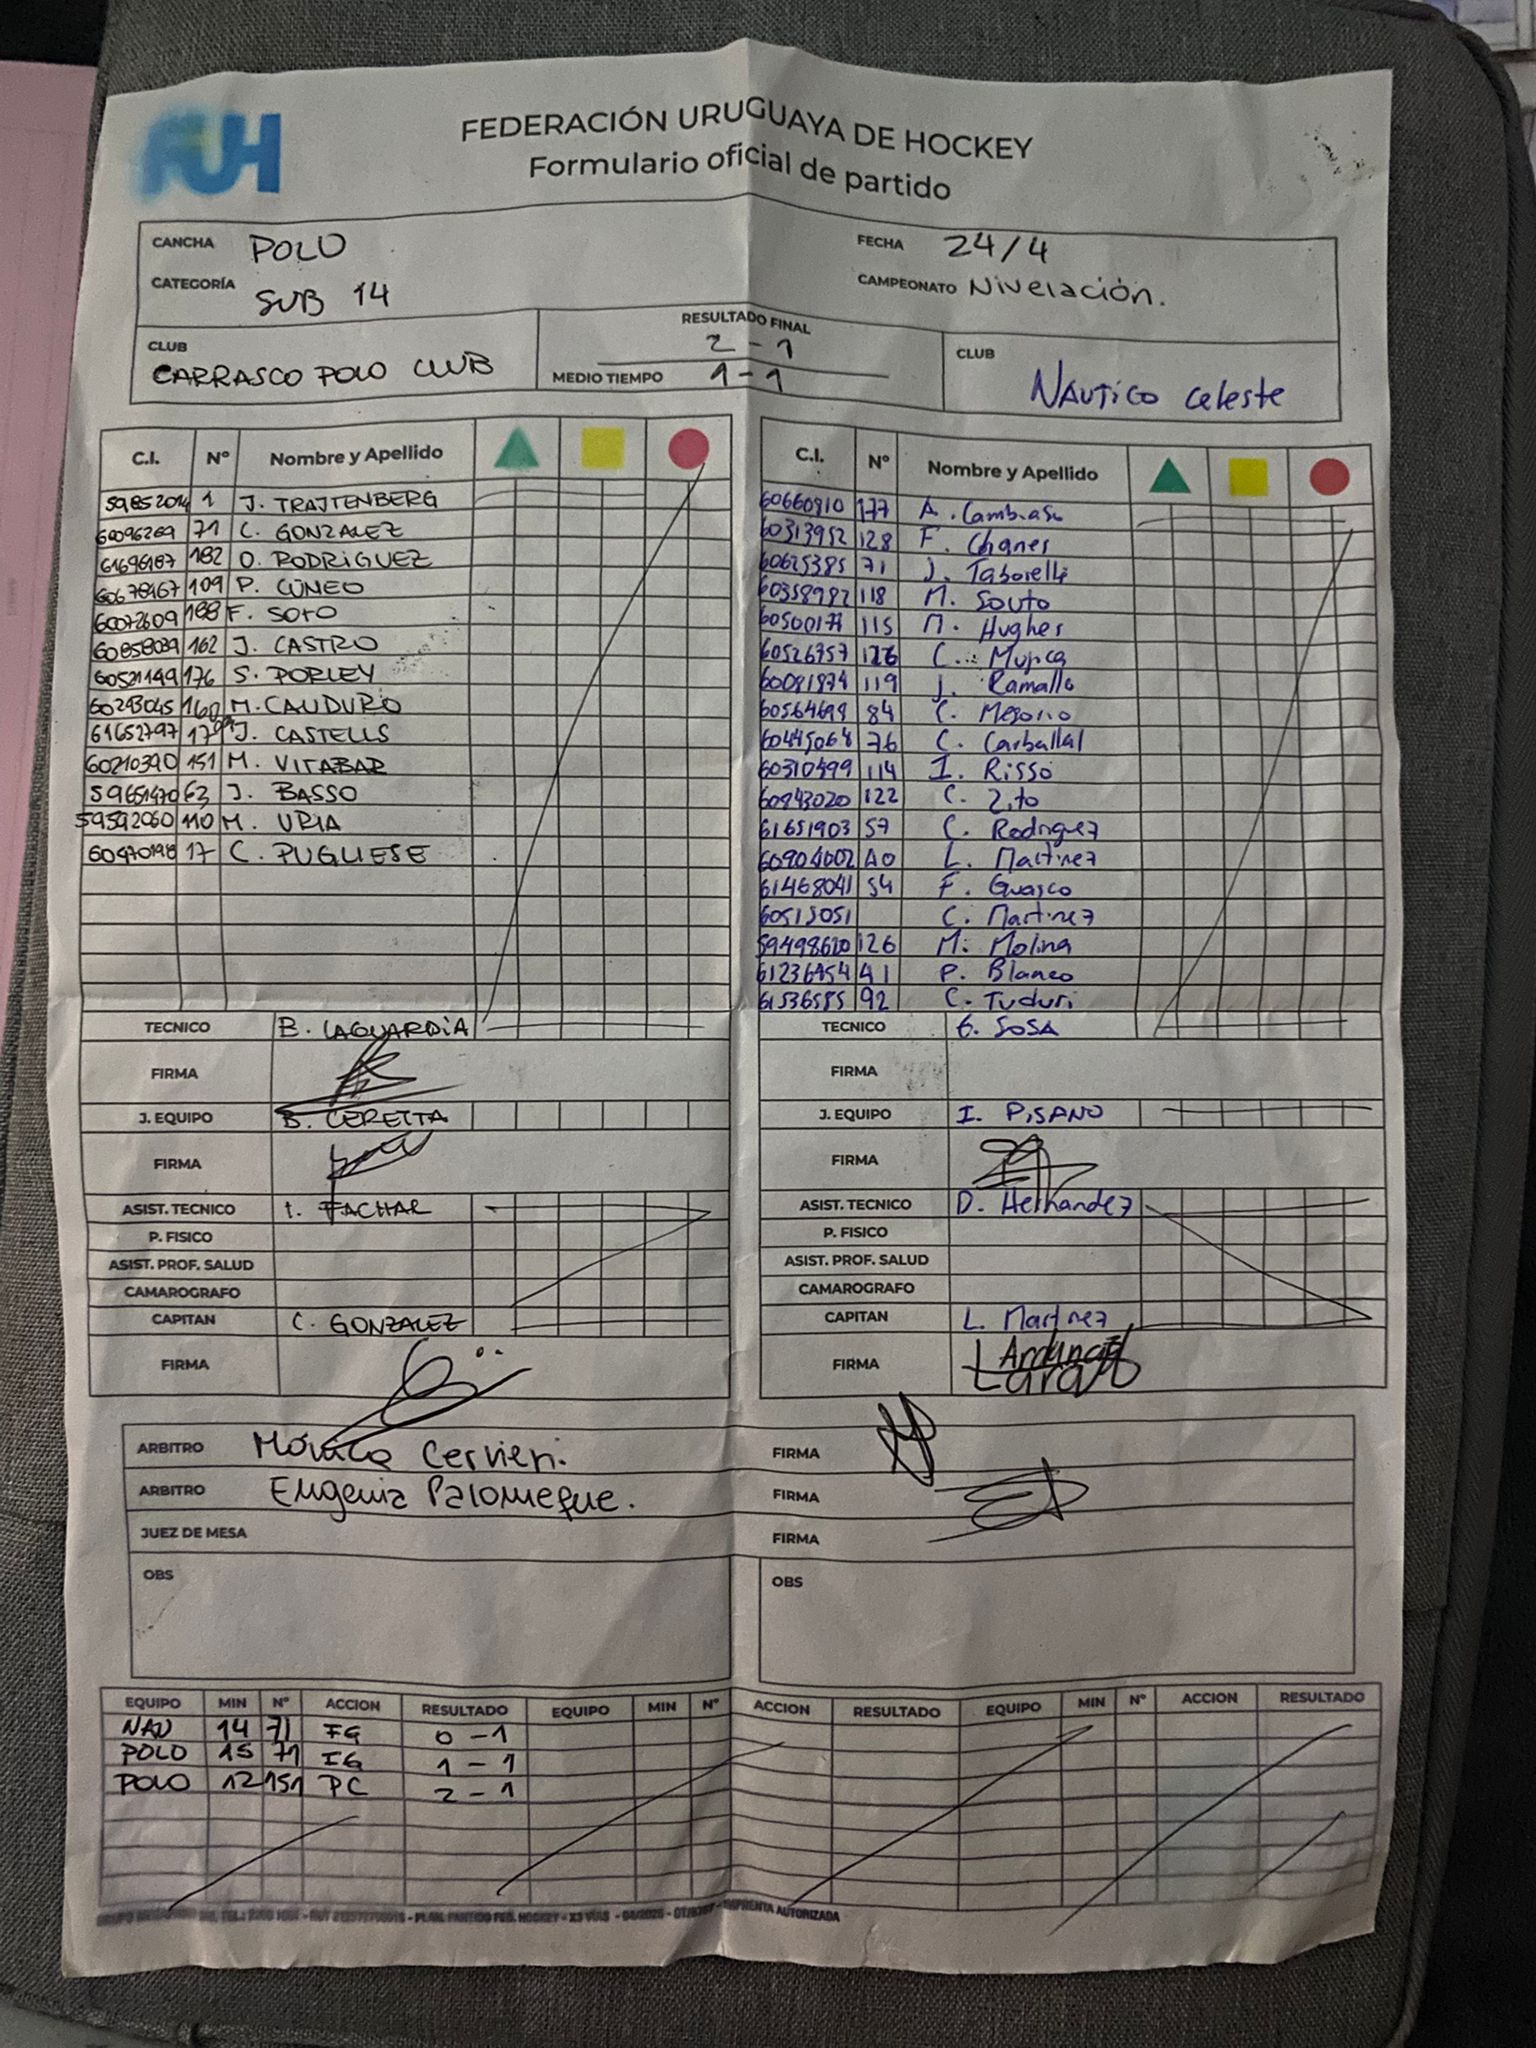 FUH
FEDERACIÓN URUGUAYA DE HOCKEY
Formulario oficial de partido
CANCHA POLO
FECHA 24/4
CATEGORÍA SUB 14
CAMPEONATO Nivelación.
CLUB CARRASCO POLO CLUB
RESULTADO FINAL 2-1
MEDIO TIEMPO 1-1
CLUB NAUTICO Celeste
C.I. Nº Nombre y Apellido
5985201 1 J. TRAJTENBERG
60096269 71 C. GONZALEZ
61696187 182 O. RODRIGUEZ
60678967 109 P. CÚNEO
60072609 188 F. SOTO
60858039 162 J. CASTRO
60521149 176 S. PORLEY
60293045 160 M. CAUDURO
61652797 J. CASTELLS
60210390 151 M. VITABAR
59651470 63 J. BASSO
59592060 110 M. URIA
60470198 17 C. PUGLIESE
TECNICO B. LAGUARDIA
FIRMA
J. EQUIPO B. CERETTA
FIRMA
ASIST. TECNICO I. FACHAR
P. FISICO
ASIST. PROF. SALUD
CAMAROGRAFO
CAPITAN C. GONZALEZ
FIRMA
C.I. Nº Nombre y Apellido
60660810 177 A. Cambiaso
60313952 128 F. Chanes
60625385 71 J. Taborelli
60358982 118 M. Souto
115 M. Hughes
60526757 126 C. Mujica
60081874 119 J. Ramallo
60564698 84 C.
60445064 76 C. Carballal
60310499 114 I. Risso
60843020 122 C. Zito
61651903 57 C. Rodriguez
60904002 40 L. Martinez
61468041 54 F. Guasco
60515051 C. Martinez
59498620 126 M. Molina
61236454 41 P. Blanco
61536585 92 C. Tuduri
TECNICO G. SOSA
FIRMA
J. EQUIPO I. PISANO
FIRMA
ASIST. TECNICO D. Hernandez
P. FISICO
ASIST. PROF. SALUD
CAMAROGRAFO
CAPITAN L. Martinez
FIRMA
ARBITRO Mónica Cervieri.
FIRMA
ARBITRO Eugenia Palomeque.
FIRMA
JUEZ DE MESA
FIRMA
OBS
OBS
EQUIPO MIN Nº ACCION RESULTADO EQUIPO MIN Nº ACCION RESULTADO EQUIPO MIN Nº ACCION RESULTADO
NAU 14 71 FG 0-1
POLO 15 71 IG 1-1
POLO 12 151 PC 2-1
PLAN. PARTIDO FED. HOCKEY - X3 VIAS - IMPRENTA AUTORIZADA